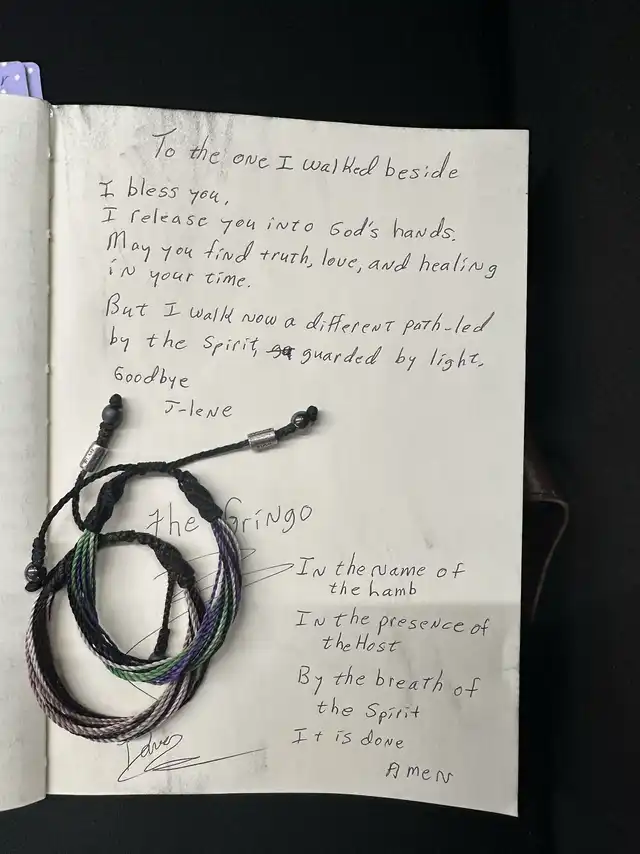 To the one I walked beside
I bless you,
I release you into God's hands.
May you find truth, love, and healing
in your time.
But I walk now a different path-led
by the Spirit, guarded by light.
Goodbye
J-lene
the Gringo
In the name of
the Lamb
In the presence of
the Host
By the breath of
the Spirit
It is done
Amen